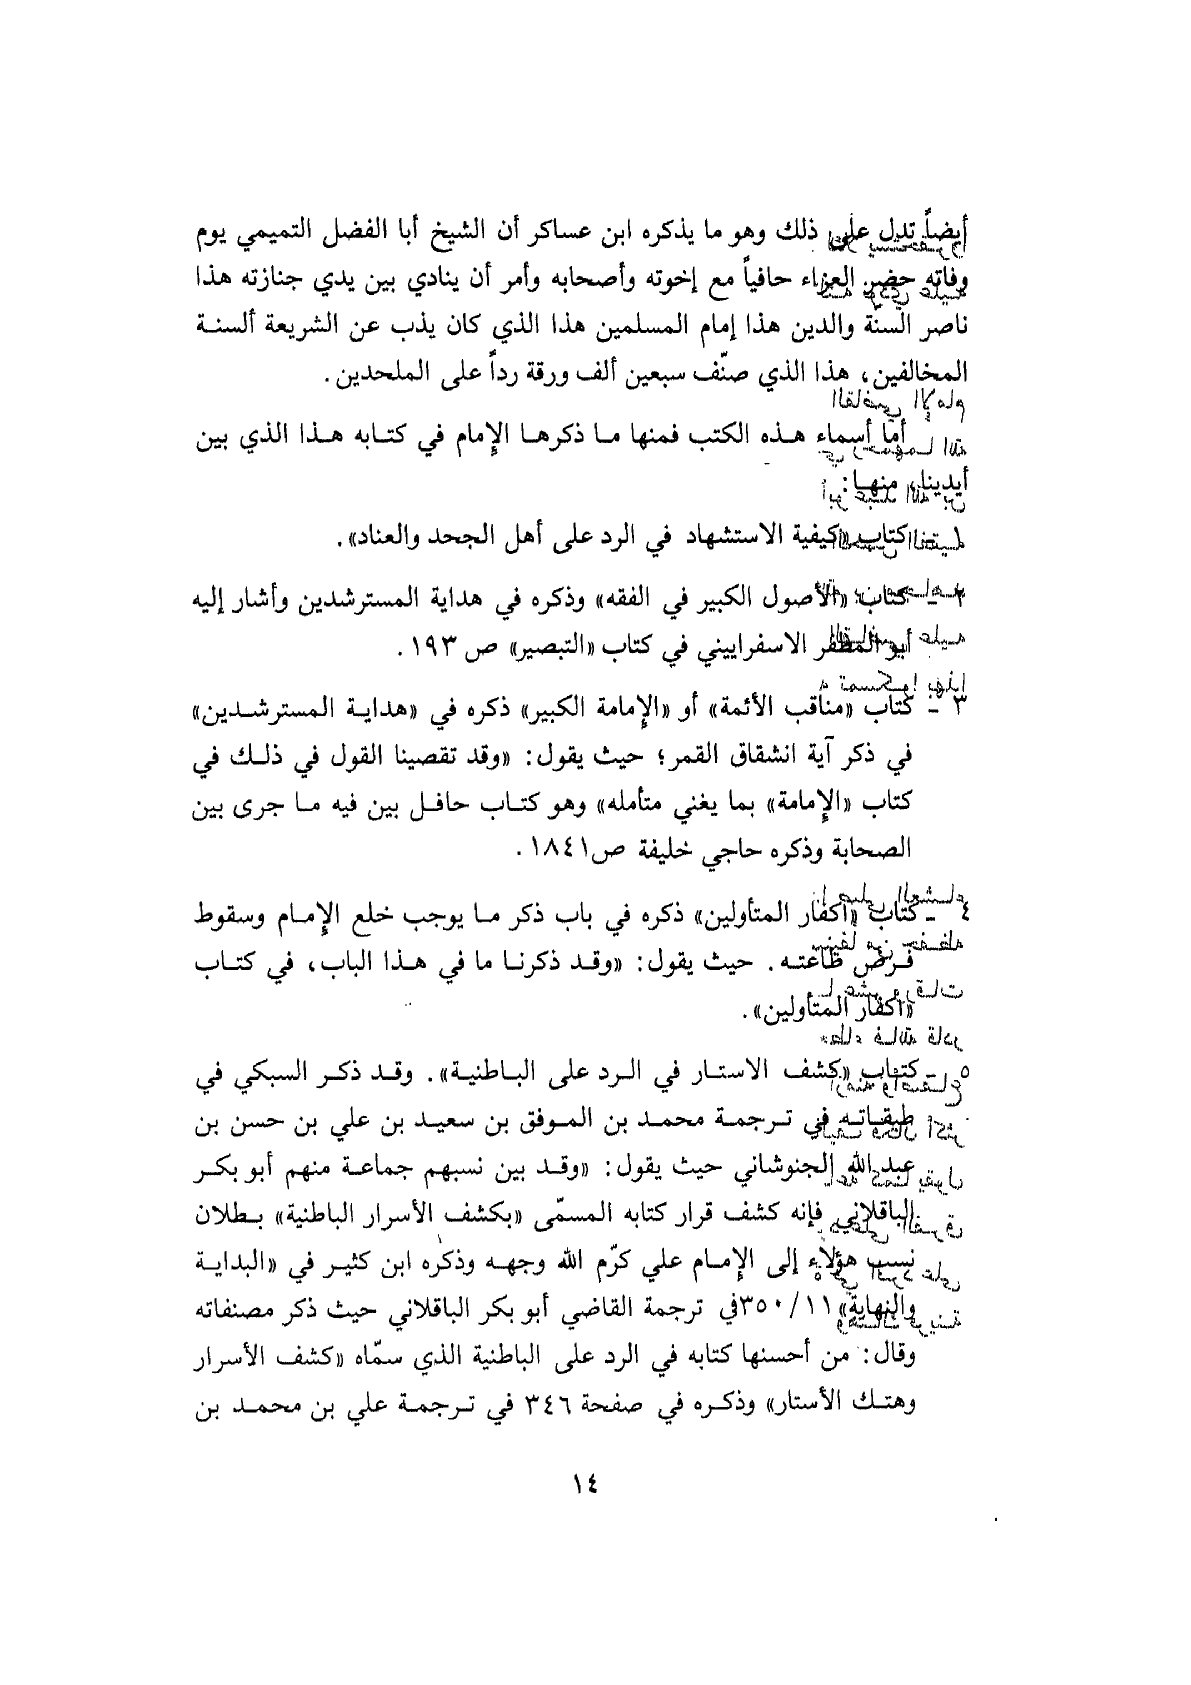 أيضاً تدل على ذلك وهو ما يذكره ابن عساكر أن الشيخ أبا الفضل التميمي يوم
وفاته حضر العزاء حافياً مع إخوته وأصحابه وأمر أن ينادي بين يدي جنازته هذا
ناصر السنّة والدين هذا إمام المسلمين هذا الذي كان يذب عن الشريعة ألسنة
المخالفين، هذا الذي صنّف سبعين ألف ورقة رداً على الملحدين.
أما أسماء هذه الكتب فمنها ما ذكرها الإمام في كتابه هذا الذي بين
أيدينا، منها:
١ - كتاب «كيفية الاستشهاد في الرد على أهل الجحد والعناد».
٢ - كتاب: «الأصول الكبير في الفقه» وذكره في هداية المسترشدين وأشار إليه
أبو المظفر الاسفراييني في كتاب «التبصير» ص ١٩٣.
٣ - كتاب «مناقب الأئمة» أو «الإمامة الكبير» ذكره في «هداية المسترشدين»
في ذكر آية انشقاق القمر؛ حيث يقول: «وقد تقصينا القول في ذلك في
كتاب «الإمامة» بما يغني متأمله» وهو كتاب حافل بين فيه ما جرى بين
الصحابة وذكره حاجي خليفة ص١٨٤١.
٤ - كتاب «أكفار المتأولين» ذكره في باب ذكر ما يوجب خلع الإمام وسقوط
فرض طاعته. حيث يقول: «وقد ذكرنا ما في هذا الباب، في كتاب
«أكفار المتأولين».
٥ - كتاب «كشف الاستار في الرد على الباطنية». وقد ذكر السبكي في
طبقاته في ترجمة محمد بن الموفق بن سعيد بن علي بن حسن بن
عبد الله الجنوشاني حيث يقول: «وقد بين نسبهم جماعة منهم أبو بكر
الباقلاني فإنه كشف قرار كتابه المسمّى «بكشف الأسرار الباطنية» بطلان
نسب هؤلاء إلى الإمام علي كرّم الله وجهه وذكره ابن كثير في «البداية
والنهاية» ١١/٣٥٠في ترجمة القاضي أبو بكر الباقلاني حيث ذكر مصنفاته
وقال: من أحسنها كتابه في الرد على الباطنية الذي سمّاه «كشف الأسرار
وهتك الأستار» وذكره في صفحة ٣٤٦ في ترجمة علي بن محمد بن
١٤